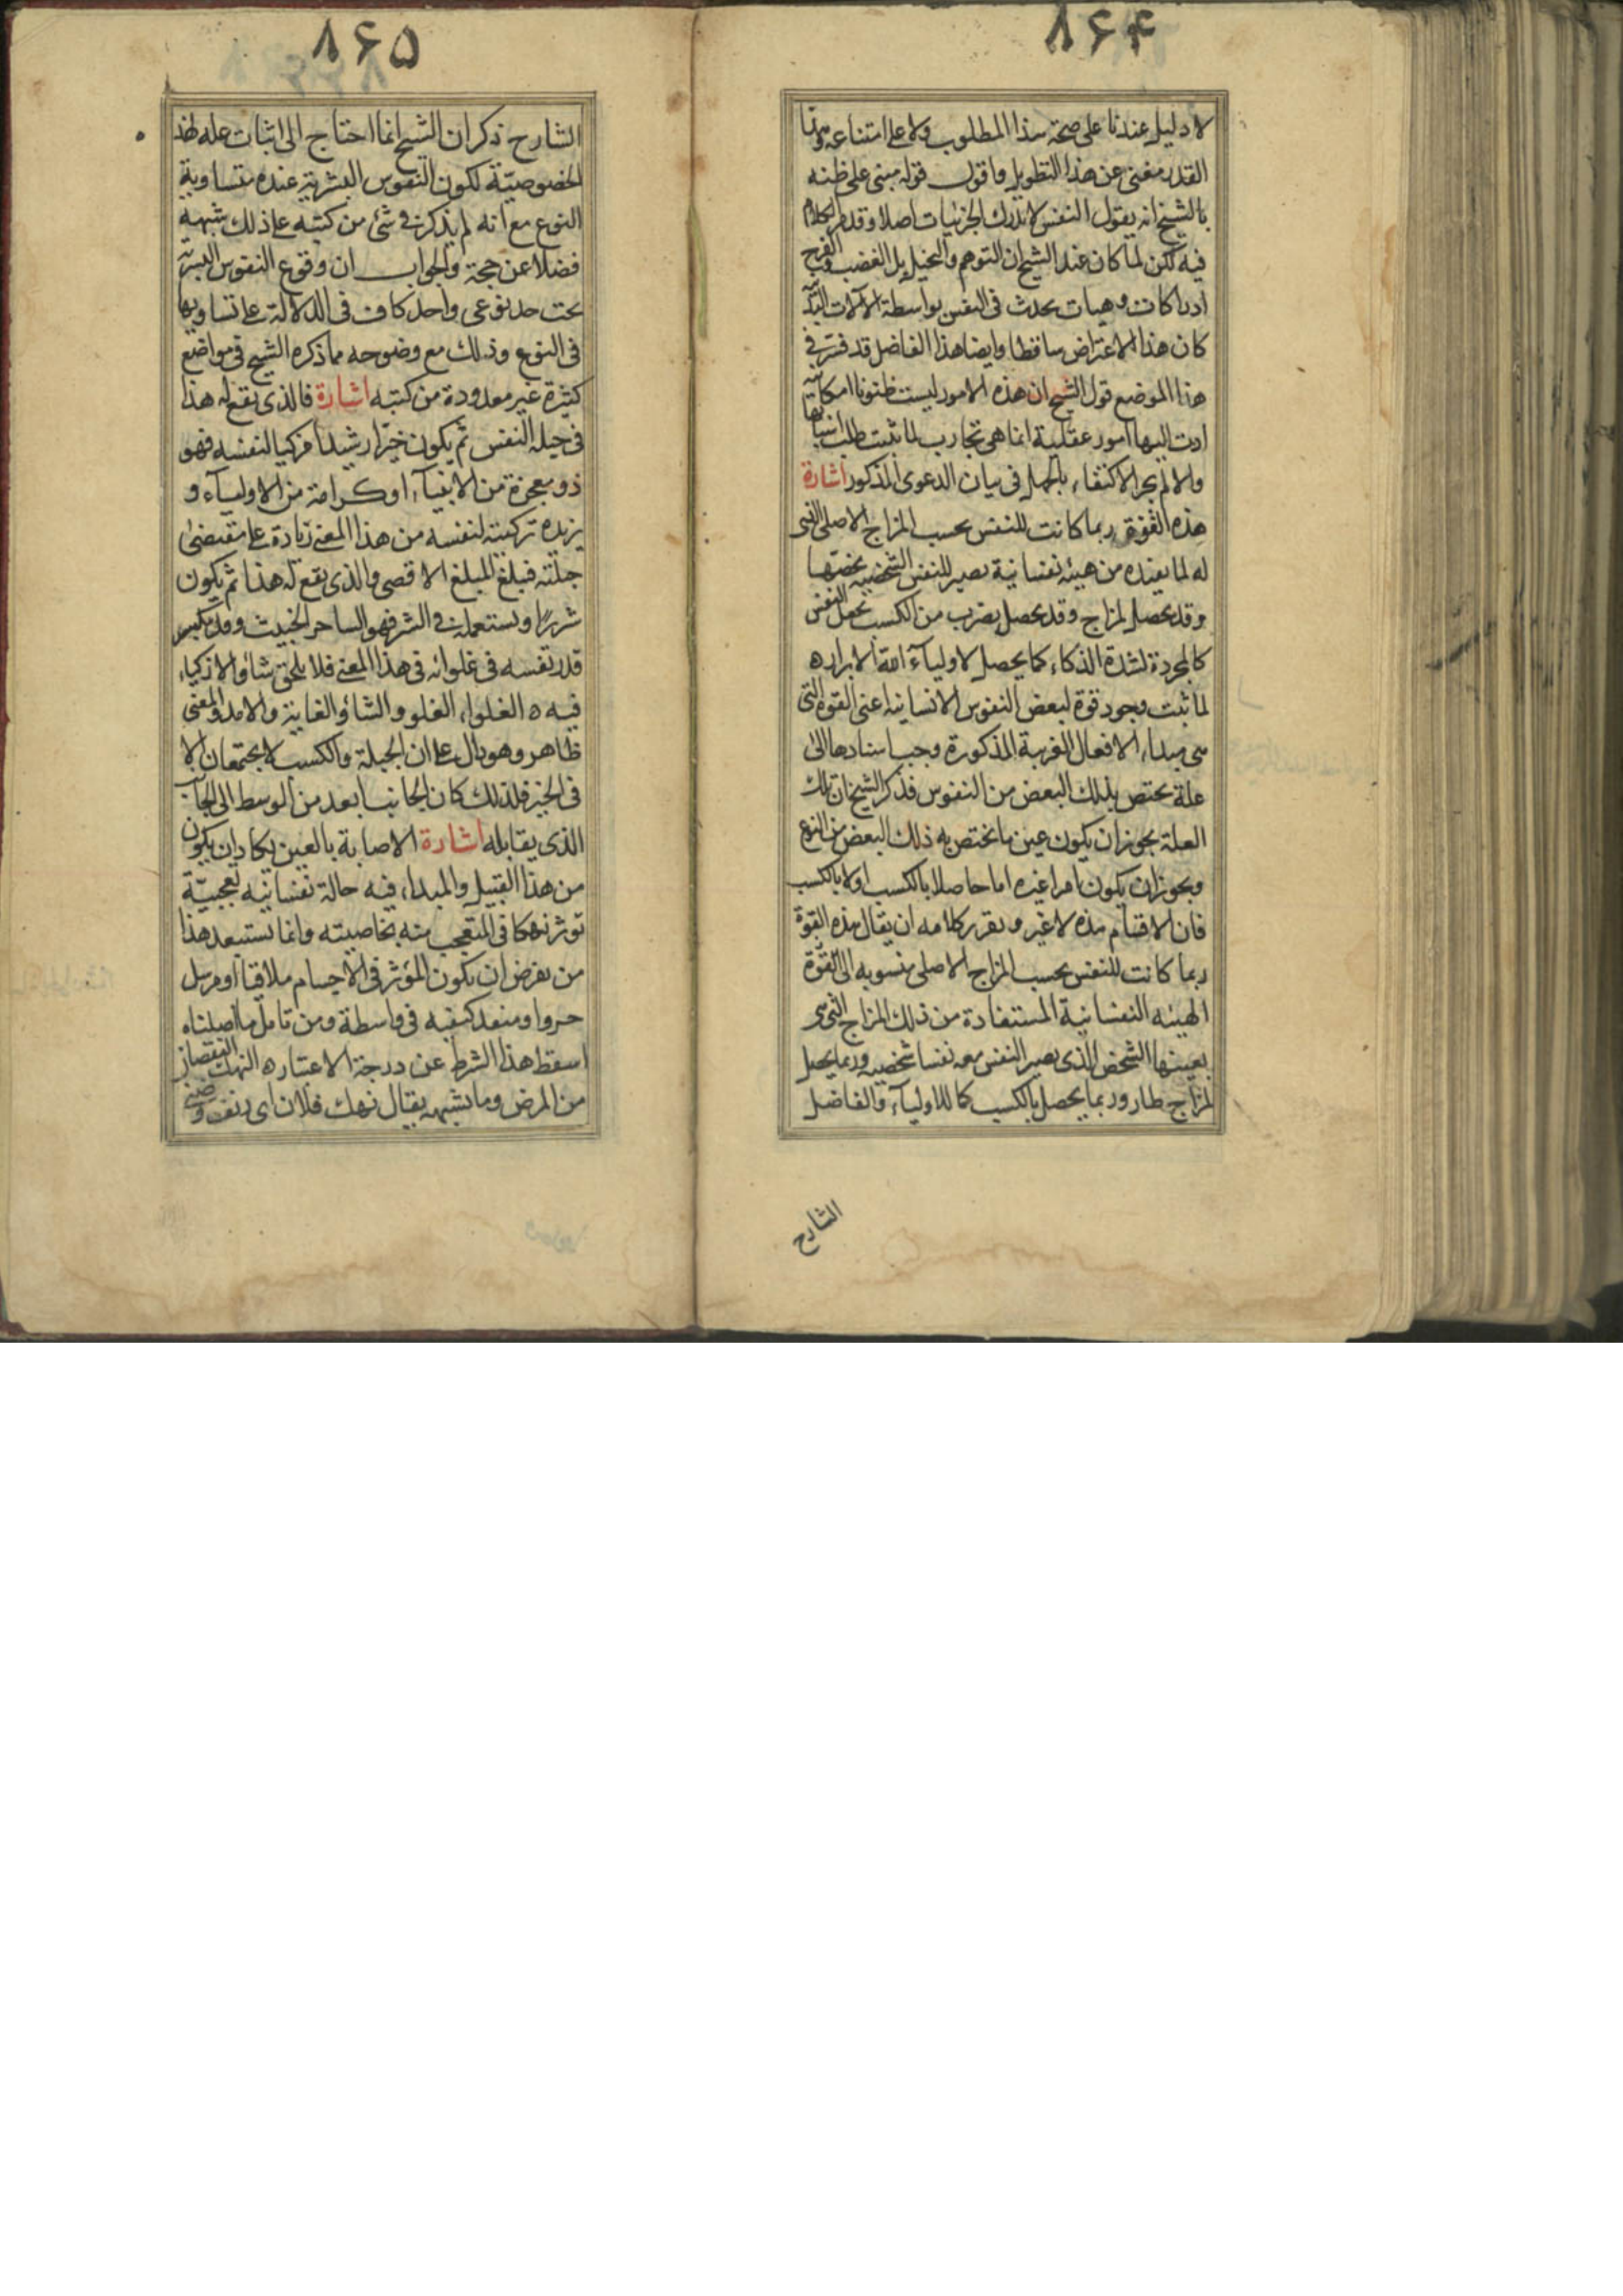 ٨۶۴
لا دليل عندنا على صحة هذا المطلوب ولا على امتناعه وهذا
القدر مغنى عن هذا التطويل واقول قوله مبنى على ظنه
بالشيخ انه يقول النفس لا تدرك الجزئيات اصلا وقد مر الكلام
فيه لكن لما كان عند الشيخ ان التوهم والتخيل بل الغضب والفرح
ادراكات وهيات يحدث فى النفس بواسطة الآلات البدنية
كان هذا الاعتراض ساقطا وايضا هذا الفاضل قد فسر فى
هذا الموضع قول الشيخ ان هذه الامور ليست ظنونا امكانية
ادت اليها امور عقلية انما هى تجارب لما ثبتت طلب اسبابها
والا لم يجز الاكتفاء بالجهل فى بيان الدعوى المذكور اشارة
هذه القوة ربما كانت للنفس بحسب المزاج الاصلى الذى
له لما يفيده من هيئه نفسانية يصير للنفس الشخصيه تخصها
وقد يحصل لمزاج وقد يحصل بضرب من الكسب يجعل النفس
كالمجردة لشدة الذكاء كما يحصل لاولياء الله الابرار ه
لما ثبت وجود قوة لبعض النفوس الانسانيه اعنى القوة التى
هى مبداء الافعال الغريبة المذكورة وجب اسنادها الى
علة يختص بذلك البعض من النفوس فذكر الشيخ ان تلك
العلة يجوز ان يكون عين ما يختص به ذلك البعض من النوع
ويجوز ان يكون امرا غيره اما حاصلا بالكسب او لا بالكسب
فان الاقسام هذه لا غير وتقرير كلامه ان يقال هذه القوة
ربما كانت للنفس بحسب المزاج الاصلى منسوبه الى القوة
الهيئه النفسانية المستفادة من ذلك المزاج التى هى
بعينها الشخص الذى يصير النفس معه نفسا شخصيه وربما يحصل
لمزاج طار وربما يحصل بالكسب كما للاولياء والفاضل
الشارح
٨۶۵
الشارح ذكر ان الشيخ انما احتاج الى اثبات عله لهذ
الخصوصيّة لكون النفوس البشرية عنده متساوية
النوع مع انه لم يذكر فى شئ من كتبه على ذلك شبهة
فضلا عن حجة والجواب ان وقوع النفوس البشرية
تحت حد نوعى واحد كاف فى الدلالة على تساويها
فى النوع وذلك مع وضوحه مما ذكره الشيخ فى مواضع
كثيرة غير معدودة من كتبه اشارة فالذى يقع له هذا
فى جبلة النفس ثم يكون خيّرا رشيدا مزكيا لنفسه فهو
ذو معجزة من الانبياء او كرامة من الاولياء و
يزيده تزكيته لنفسه من هذا المعنى زيادة على مقتضى
جبلته فيبلغ المبلغ الاقصى والذى يقع له هذا ثم يكون
شريرا ويستعمله فى الشر فهو الساحر الخبيث وقد يكسر
قدر نفسه فى غلوائه فى هذا المعنى فلا يلحق شأو الازكياء
فيه ه الغلواء الغلو والشأو الغاية والامد والمعنى
ظاهر وهو دال على ان الجبلة والكسب لا يجتمعان الا
فى الخير فلذلك كان الجانب ابعد من الوسط الى الجانب
الذى يقابله اشارة الاصابة بالعين يكاد ان يكون
من هذا القبيل والمبداء فيه حالة نفسانيه تعجبيّة
تؤثر نهكا فى المتعجب منه بخاصيته وانما يستبعد هذا
من يفرض ان يكون المؤثر فى الاجسام ملاقيا او مرسل
جزوا ومنفذ كيفيه فى واسطة ومن تامل ما اصلناه
اسقط هذا الشرط عن درجة الاعتبار ه النهك النقصان
من المرض وما يشبهه يقال نهك فلان اى دنف وضنى